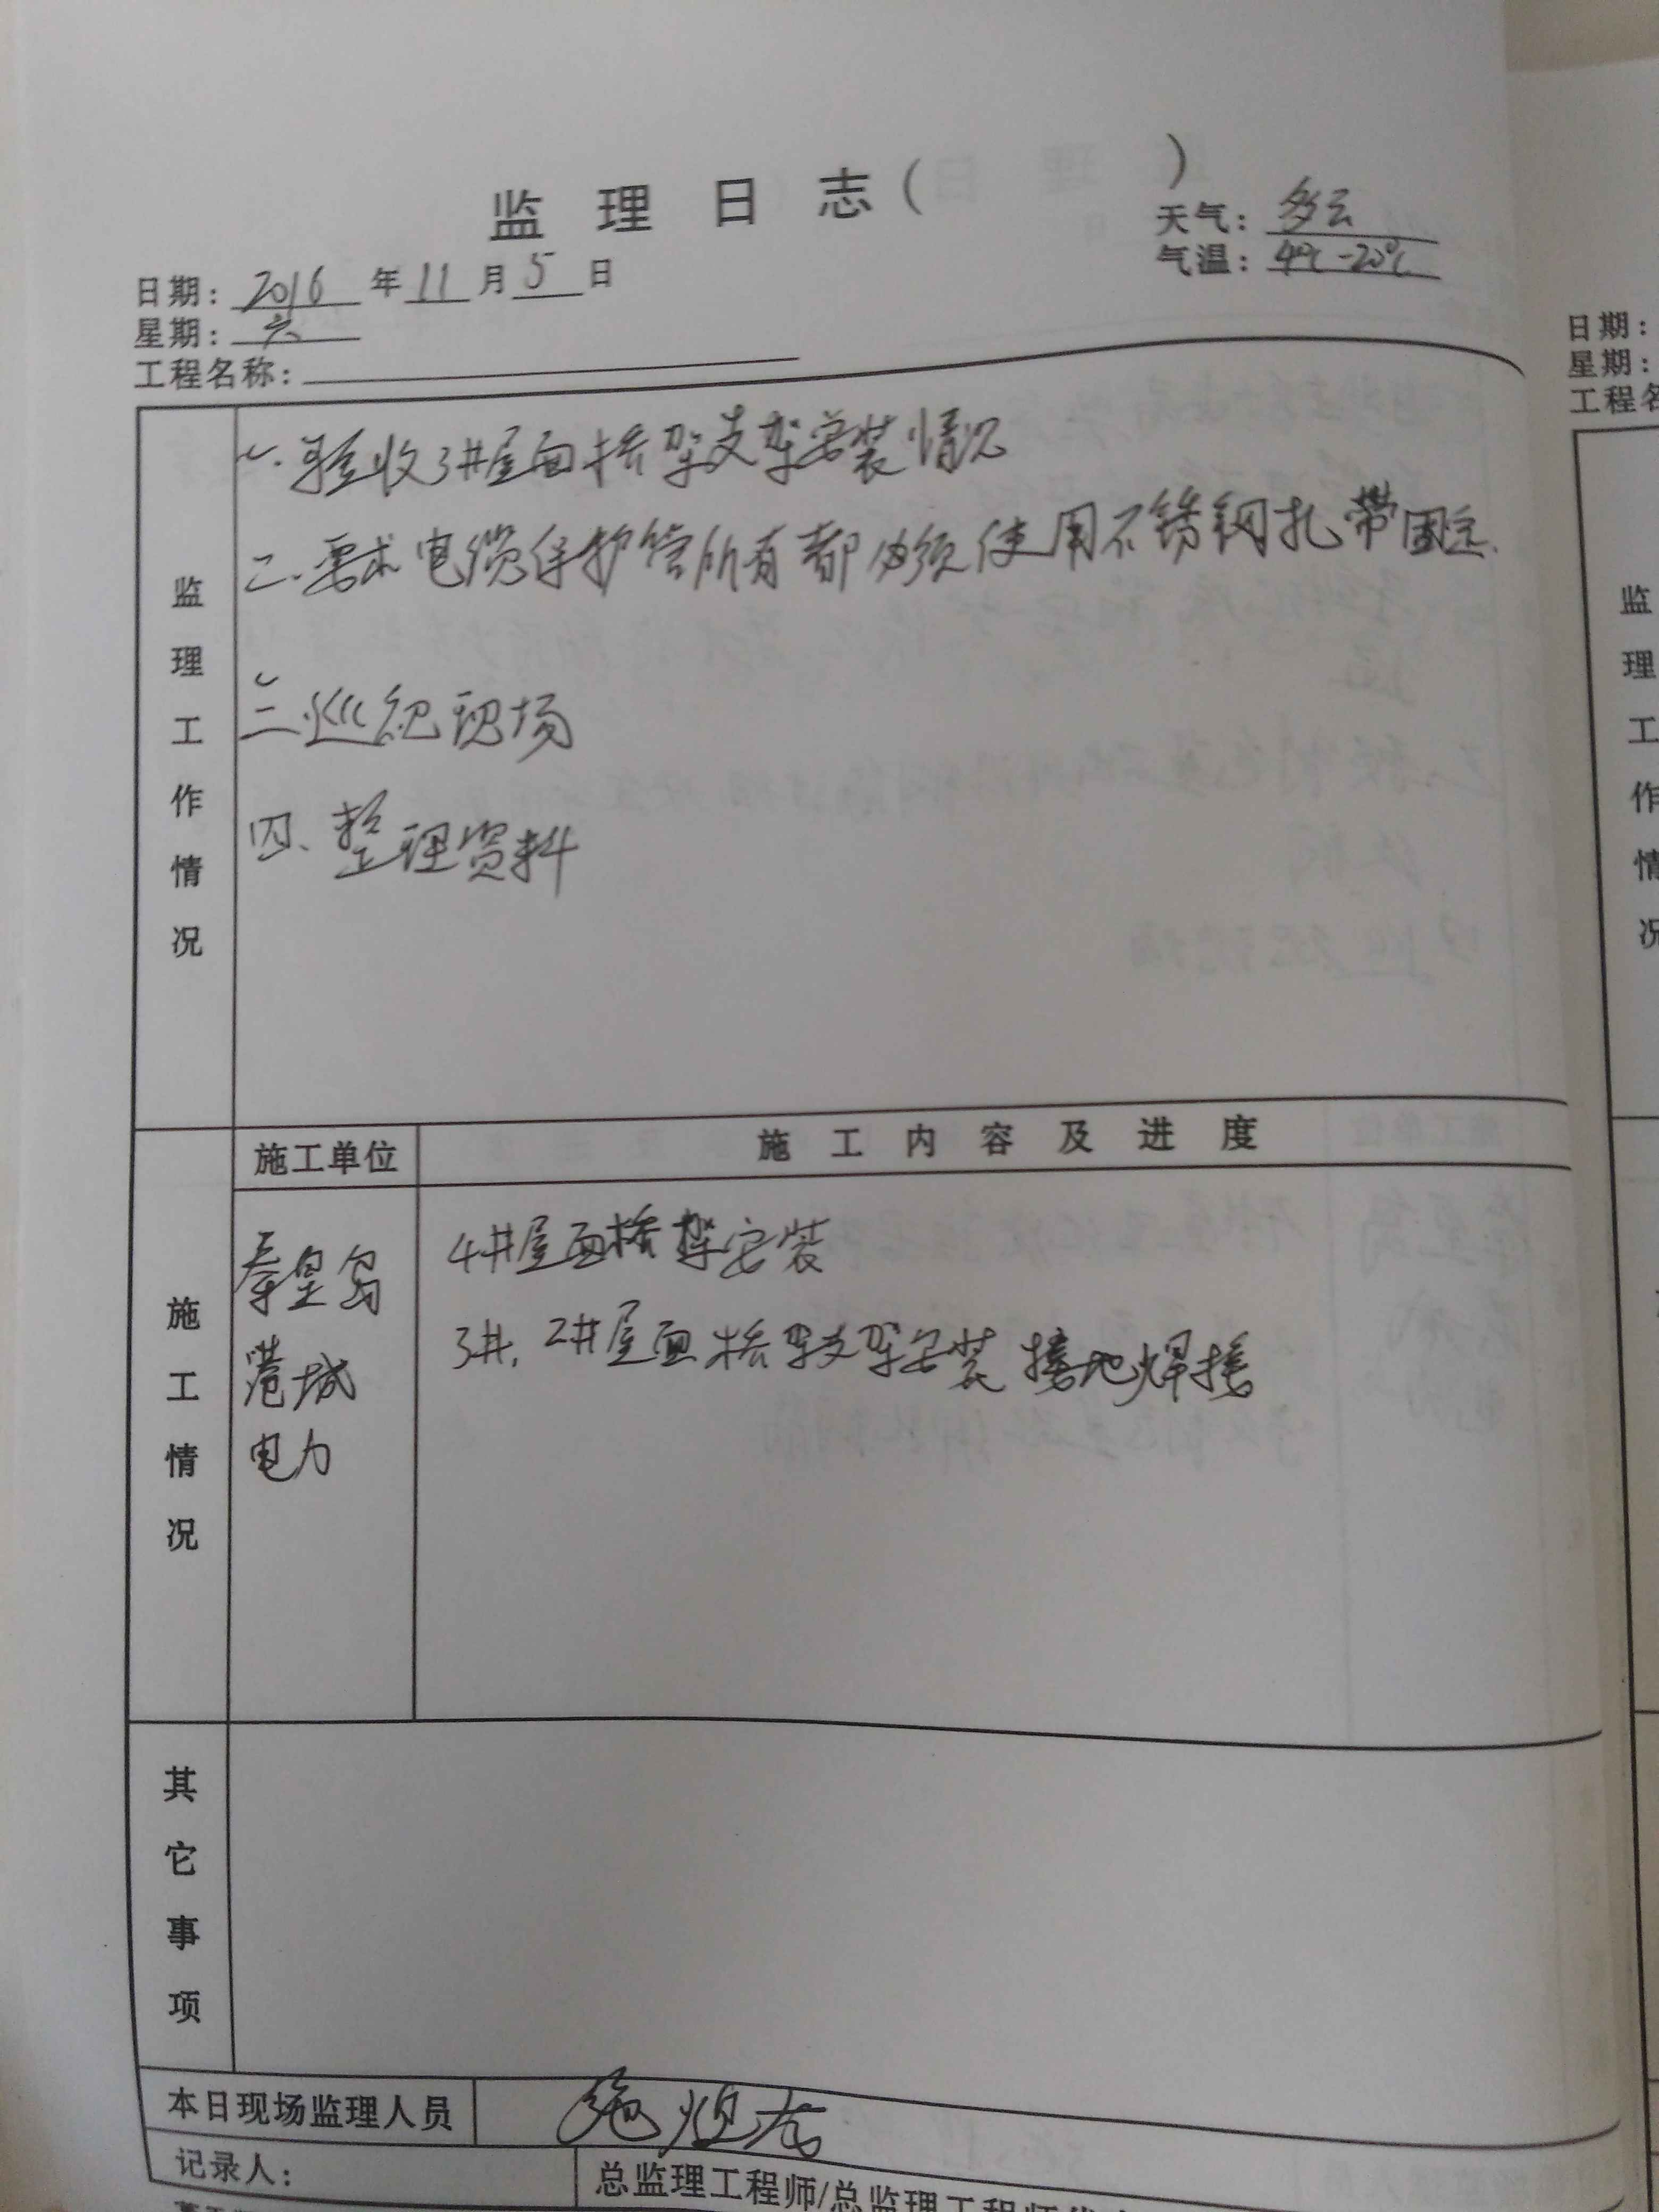 监理日志（ ）
天气：多云
气温：4℃-20℃
日期：2016年11月5日
星期：六
工程名称：
监理工作情况
一.验收3#屋面桥架支架安装情况
二.要求电缆保护管所有都必须使用不锈钢扎带固定.
三.巡视现场
四.整理资料
施工情况
施工单位 施工内容及进度
秦皇岛
港城
电力
4#屋面桥架安装
3#,2#屋面桥架支架安装 接地焊接
其它事项
本日现场监理人员
记录人： 总监理工程师/总监理工程师代
日期：
星期：
工程名
监理工作情况